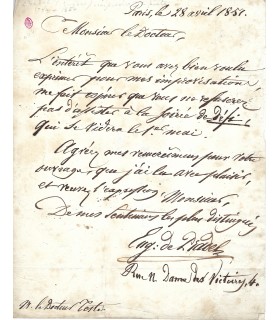 Paris, le 28 avril 1851.
Monsieur le Docteur,
L'intérêt que vous avez bien voulu
exprimer pour mes improvisations,
me fait espérer que vous ne refuserez
pas d'assister à la soirée de défi
qui se videra le 1er mai
Agréez mes remerciements pour votre
ouvrage, que j'ai lu avec plaisir,
et recevez l'expression, Monsieur,
De mes sentiments les plus distingués
Eug. de Pradel
Rue N. Dame des Victoires,
M. le Docteur